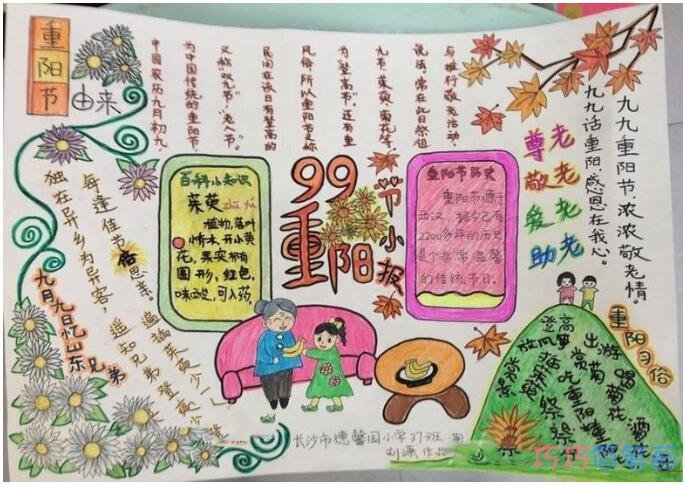 重阳节
由来
中国农历九月初九
为中国传统的重阳节
又称"双九节","老人节"。
民间在该日有登高的
风俗,所以重阳节又称
为"登高节"。还有重
九节、茱萸、菊花等
说法,常在此日祭祖
与推行敬老活动。
尊老
敬老
爱老
助老
九九重阳节,浓浓敬老情。
九九话重阳,感恩在我心。
百科小知识
茱萸 zhū yú
植物,落叶
乔木,开小黄
花,果实椭
圆形,红色,
味酸,可入药。
99
重阳
节小报
重阳节历史
重阳节源于
西汉,据今已有
2200多年的历史
是个非常温馨
的传统节日。
九月九日忆山东兄弟
独在异乡为异客,
每逢佳节倍思亲。
遥知兄弟登高处,
遍插茱萸少一人。
重阳习俗
登高
出游
赏菊
放风筝
吃重阳糕
长沙市德馨园小学37班